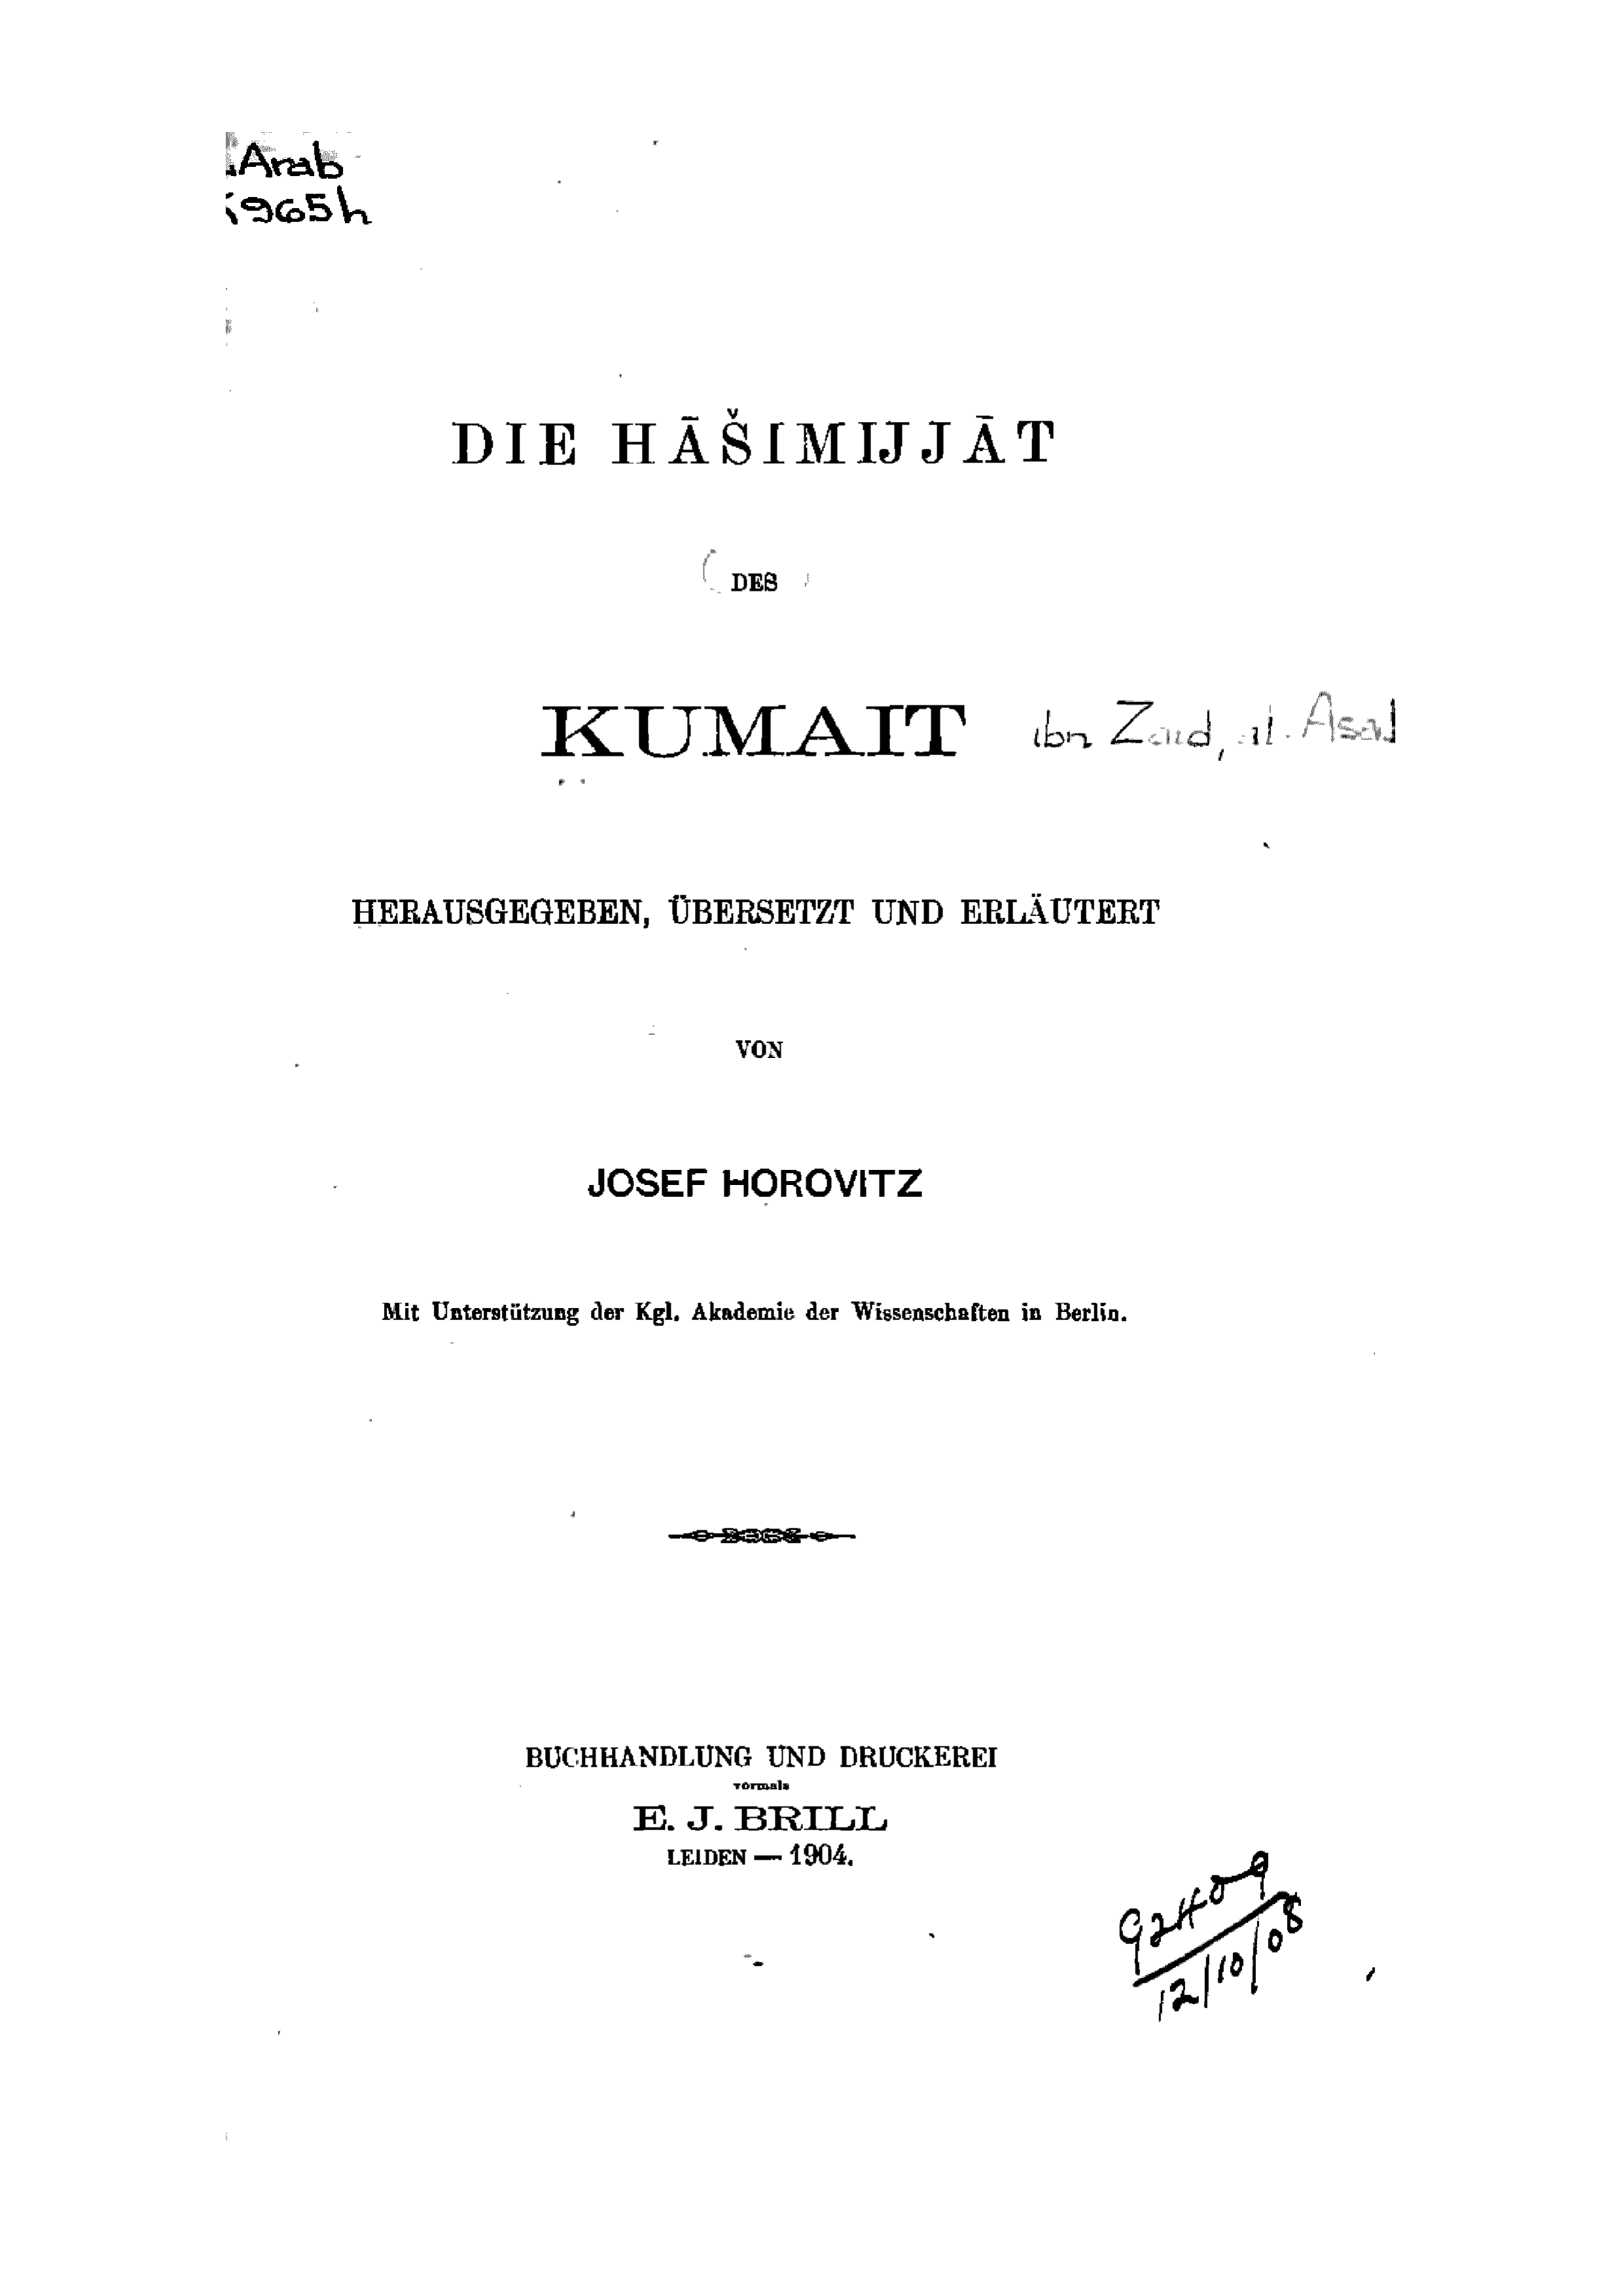 Arab
965h
DIE HĀŠIMIJJĀT
DES
KUMAIT ibn Zaid, al-Asad
HERAUSGEGEBEN, ÜBERSETZT UND ERLÄUTERT
VON
JOSEF HOROVITZ
Mit Unterstützung der Kgl. Akademie der Wissenschaften in Berlin.
BUCHHANDLUNG UND DRUCKEREI
vormals
E. J. BRILL
LEIDEN — 1904.
92409
12/10/08